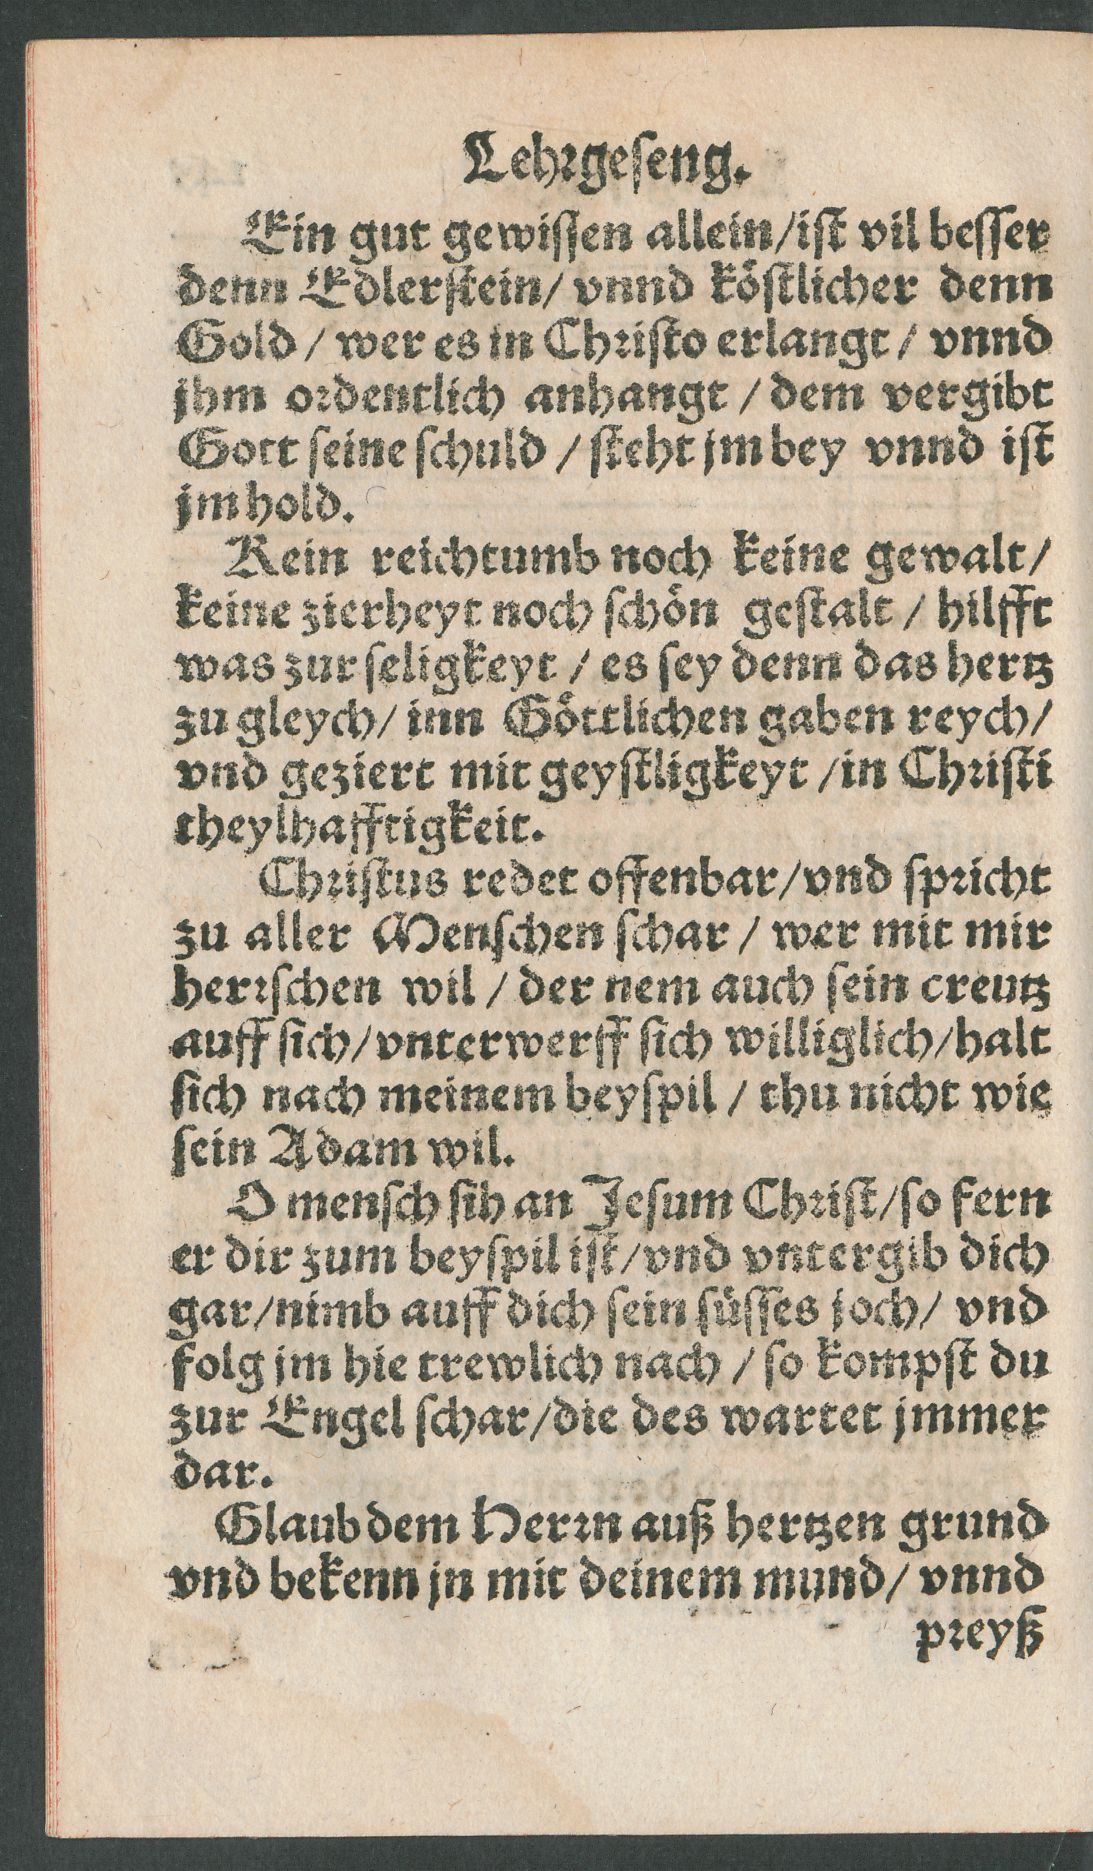 Lehrgeseng.
Ein gut gewissen allein/ist vil besser
denn Edlerstein/ vnnd köstlicher denn
Gold / wer es in Christo erlangt / vnnd
jhm ordentlich anhangt / dem vergibt
Gott seine schuld / steht jm bey vnnd ist
jm hold.
Kein reichtumb noch keine gewalt/
keine zierheyt noch schön gestalt / hilfft
was zur seligkeyt / es sey denn das hertz
zu gleych/ inn Göttlichen gaben reych/
vnd geziert mit geystligkeyt /in Christi
theylhafftigkeit.
Christus redet offenbar/vnd spricht
zu aller Menschen schar / wer mit mir
herrschen wil / der nem auch sein creutz
auff sich/vnterwerff sich williglich/halt
sich nach meinem beyspil / thu nicht wie
sein Adam wil.
O mensch sih an Jesum Christ/so fern
er dir zum beyspil ist/vnd vntergib dich
gar/nimb auff dich sein süsses joch/ vnd
folg jm hie trewlich nach / so kompst du
zur Engel schar/die des wartet jmmer
dar.
Glaub dem Herrn auß hertzen grund
vnd bekenn jn mit deinem mund/ vnnd
preyß